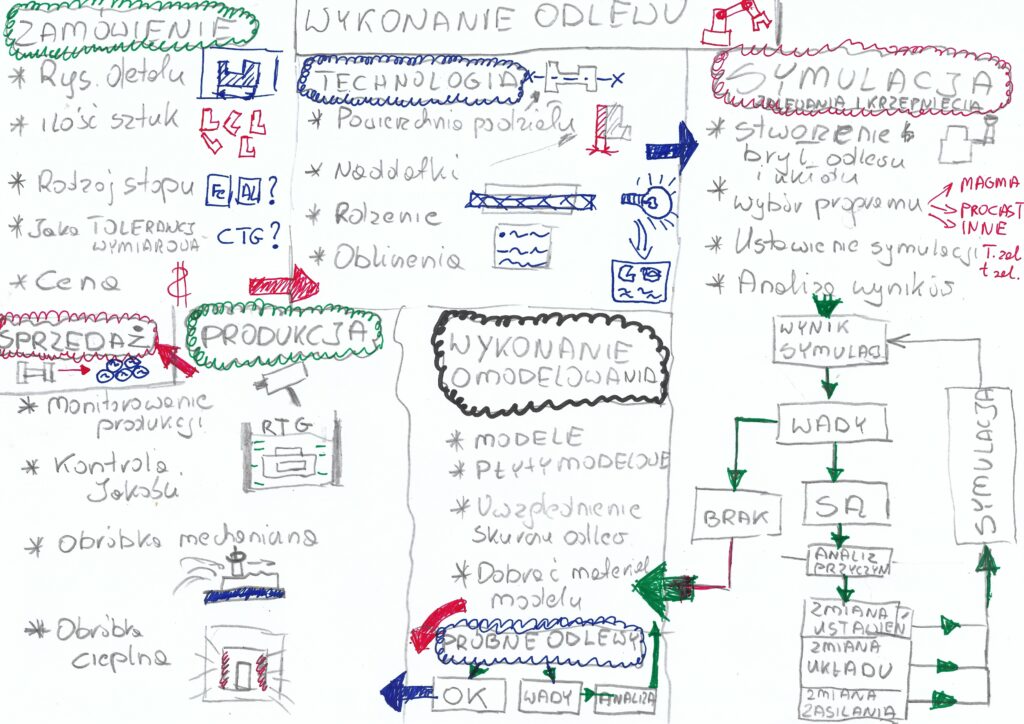 WYKONANIE ODLEWU
ZAMÓWIENIE
* Rys. detalu
* ilość sztuk
* Rodzaj stopu
Fe, AL ?
* Jaka TOLERANCJ
WYMIAROWA
CTG?
* Cena
$
TECHNOLOGIA
x x
* Powierzchnia podziału
* Naddatki
* Rdzenie
SYMULACJA
ZALEWANIA I KRZEPNIĘCIA
* Stworzenie
brył odlewu
i układu
* wybór programu
MAGMA
PROCAST
INNE
* Ustawienie symulacji
T. zal
t zal.
* Analiza wyników
WYNIK
SYMULACJ
WADY
BRAK
SĄ
ANALIZ
PRZYCZYN
ZMIANA
USTAWIEŃ
ZMIANA
UKŁADU
ZMIANA
ZASILANIA
SYMULACJA
WYKONANIE
OMODELOWANIA
* MODELE
* PŁYTY MODELOWE
* Uwzględnienie
skurczu odlew
* Dobrać materiał
modelu
PRÓBNE ODLEWY
OK
WADY
ANALIZA
PRODUKCJA
* Monitorowanie
produkcji
RTG
* Kontrola
Jakości
* Obróbka mechaniczna
* Obróbka
cieplna
SPRZEDAŻ